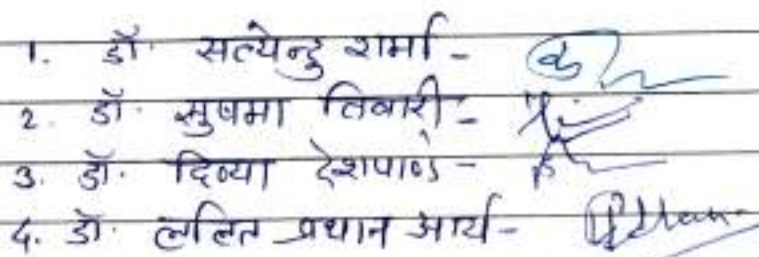 1. डॉ. सत्येन्दु शर्मा -
2. डॉ. सुषमा तिवारी -
3. डॉ. दिव्या देशपाण्डे -
4. डॉ. ललित प्रधान आर्य -